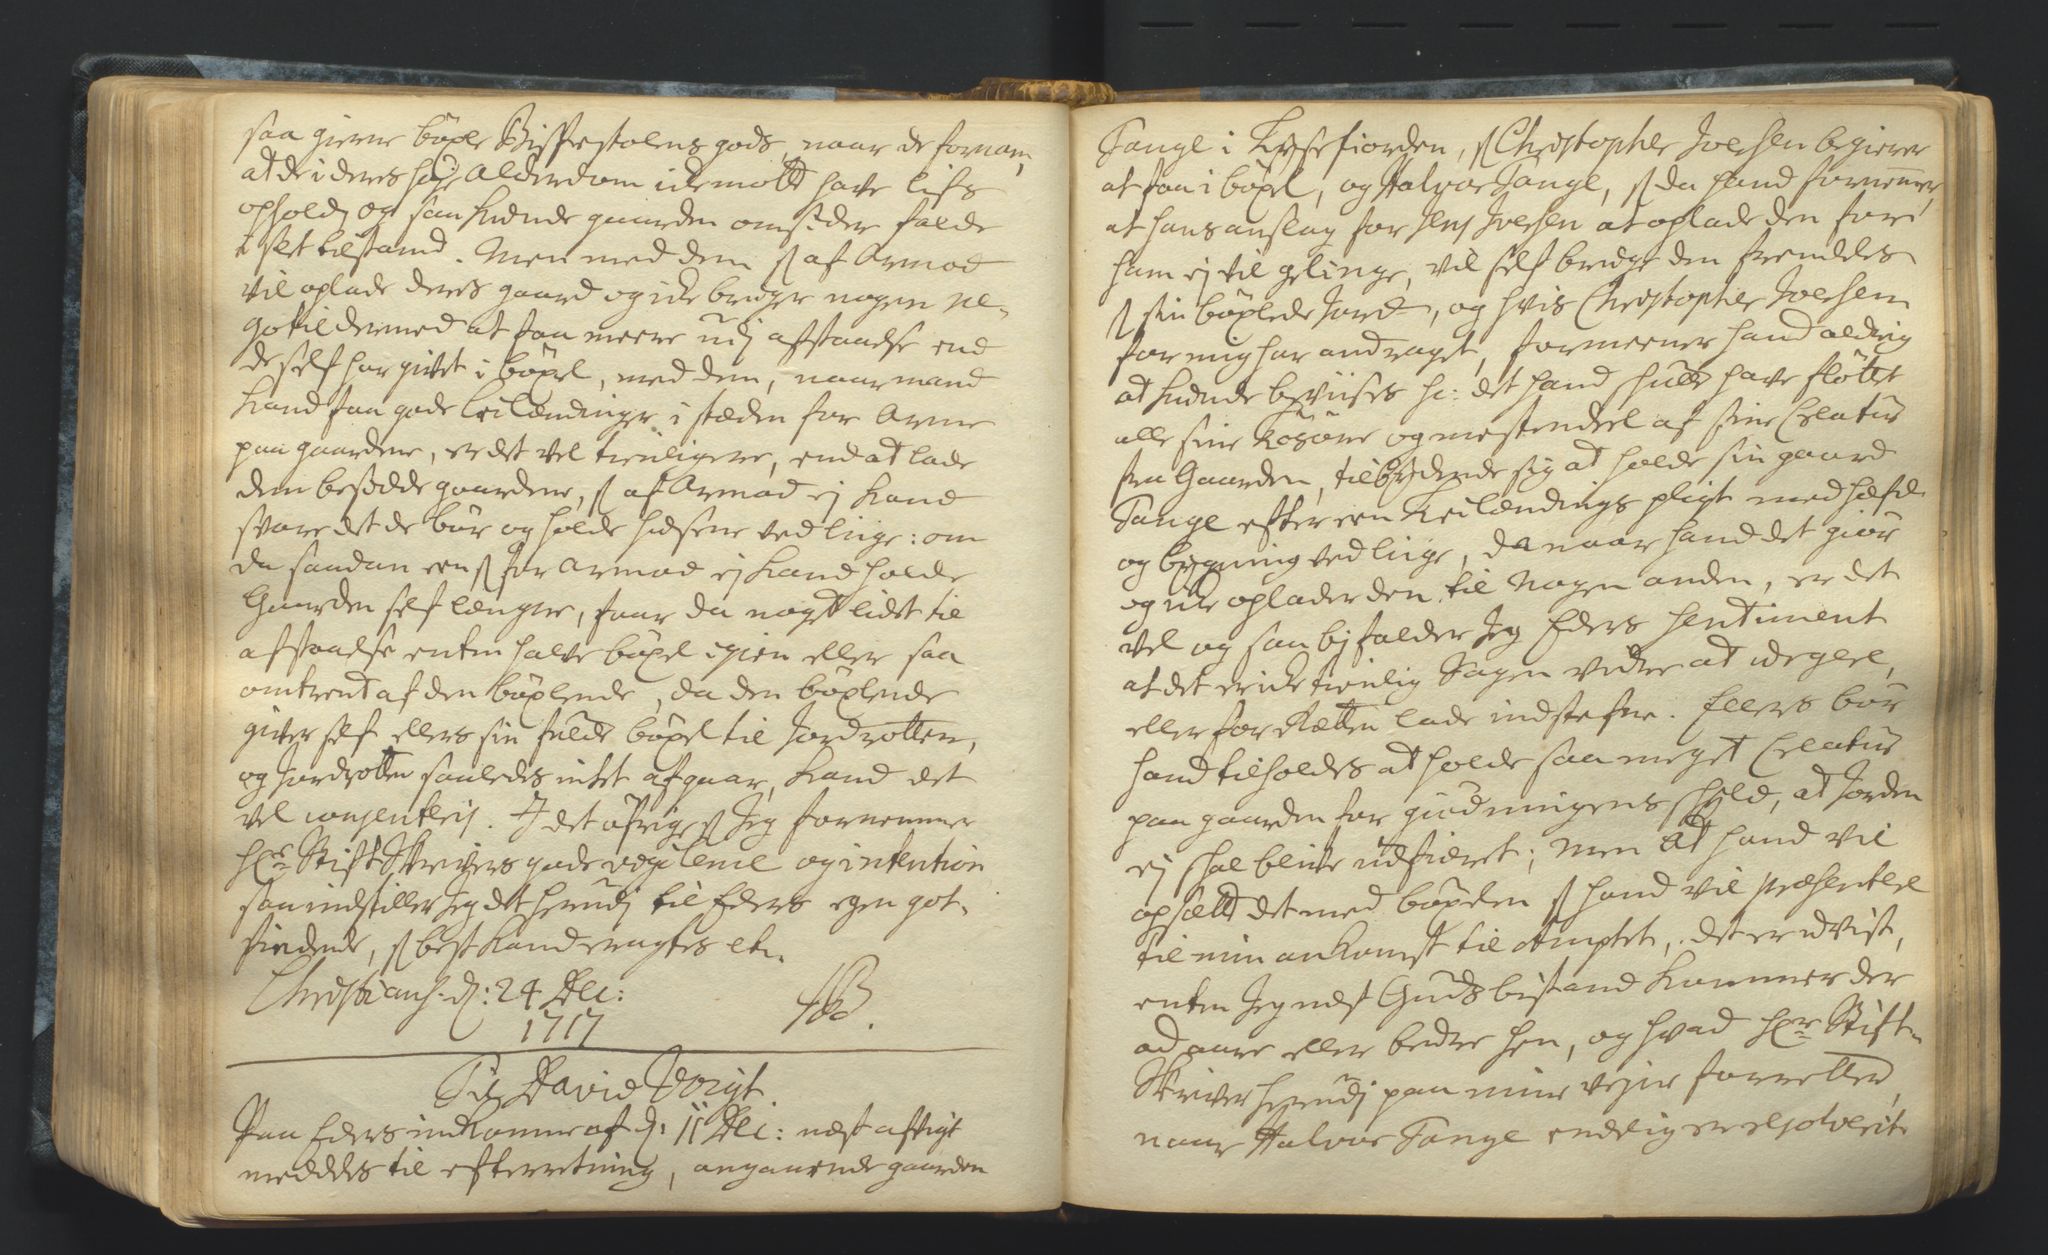 saa gierne böxle Bispestolens gods, naar de fornam,
at de i deres høje Alderdom icke mötte have lifs
ophold, og saa kunde gaarden omsider falde
i slet tilstand. Men med dem som af Armod
vil oplade deres gaard og icke bruge nogen ne-
gotie dermed at faa meere udj afstaaelse end
de self har givet i böxel, med dem, naar mand
kand faa gode Leilændinge i stæden for Arme
paa gaardene, er det vel tienligere, end at lade
dem besidde gaardene, som af Armod ej kand
svare det de bör og holde husene ved lige: om
da saadan een som for Armod ej kand holde
Gaarden self længere, faar da noget lidet til
afstaaelse enten halve böxel igien eller saa
omtrent af den böxlende, da den böxlende
giver self ellers sin fulde böxel til Jordrotten,
og Jordrotten saaledes intet afgaar, kand det
vel consenteris. I det öfrige som Jeg fornemmer
Hr. Stiftskrivers gode og intention
saa indstiller Jeg det herudj til Eders egen got-
findende, som best kand eragtes etc.
Christians. d: 24 Dec:
1717
Til David Voigt.
Paa Eders indkomne af d: 11 Dec: næst afvigt
meddeles til efterretning, angaaende gaarden
Tange i Lysefiorden, som Christopher Joensen begierer
at faa i böxel, og Halvor Tange, som da hand fornemmer,
at hans anslag for Jens Joensen at oplade den for
ham ej vil gelinge, vil self bruge den fremdeles
som sin böxlede Jord, og hvis Christopher Joensen
for mig har andraget, formeener hand aldrig
at kunde bevises hc: det hand skulle have flöttet
alle sine Kosöre og mestendeel af sine Creatur
fra Gaarden, tilbydende sig at holde sin gaard
Tange efter een Leilændings pligt med hæfd
og bygning ved lige, da naar hand det giör
og icke oplader den til Nogen anden, er det
vel og saa bifalder Jeg Eders Sentiment
at det er icke tienlig Sagen videre at
eller for Rætten lade indstefne. Ellers bör
hand tilholdes at holde saa meget Creatur
paa gaarden for giödningens skyld, at Jorden
ej skal blive udpiaret; Men at hand vil
opsætte det med böxelen som hand vil præsentere
til min ankomst til Amptet, det er uvist,
enten Jeg næst Guds bistand kommer der
ad aare eller bedre hen, og hvad Hr. Stift-
skriver herudj paa mine vegne forretter,
naar Halvor Tange endelig er resolverit